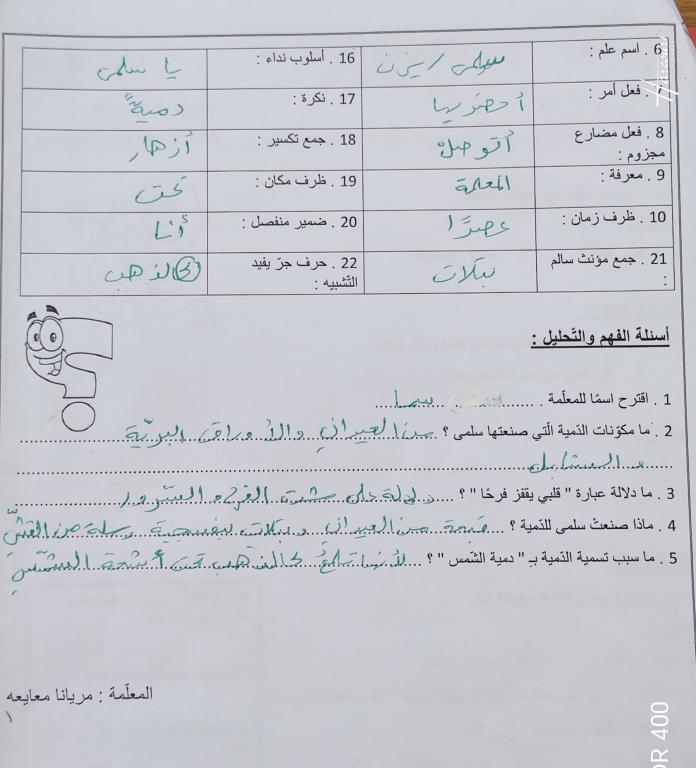 6 . اسم علم : سلمى / يزن 16 . أسلوب نداء : يا سلمى
7 . فعل أمر : أحضريها 17 . نكرة : دميةً
8 . فعل مضارع مجزوم : 18 . جمع تكسير : أزهار
9 . معرفة : المعلمة 19 . ظرف مكان : تحت
10 . ظرف زمان : عصرًا 20 . ضمير منفصل : أنا
21 . جمع مؤنث سالم : بتلات 22 . حرف جرّ يفيد التّشبيه : كالذهب
أسئلة الفهم والتّحليل :
1 . اقترح اسمًا للمعلّمة . سما
2 . ما مكوّنات الدّمية الّتي صنعتها سلمى ؟ من العيدان والأوراق البريّة
و السنابل
3 . ما دلالة عبارة " قلبي يقفز فرحًا " ؟ دلالة على شدت الفرح و السرور
4 . ماذا صنعتْ سلمى للدّمية ؟ قبعة من العيدان و بتلات بنفسجية وسلة من القشّ
5 . ما سبب تسمية الدّمية بـ " دمية الشّمس " ؟ لأنها تلمعُ كالذهب تحت أشعة الشمس
المعلّمة : مريانا معايعه
١
OR 400